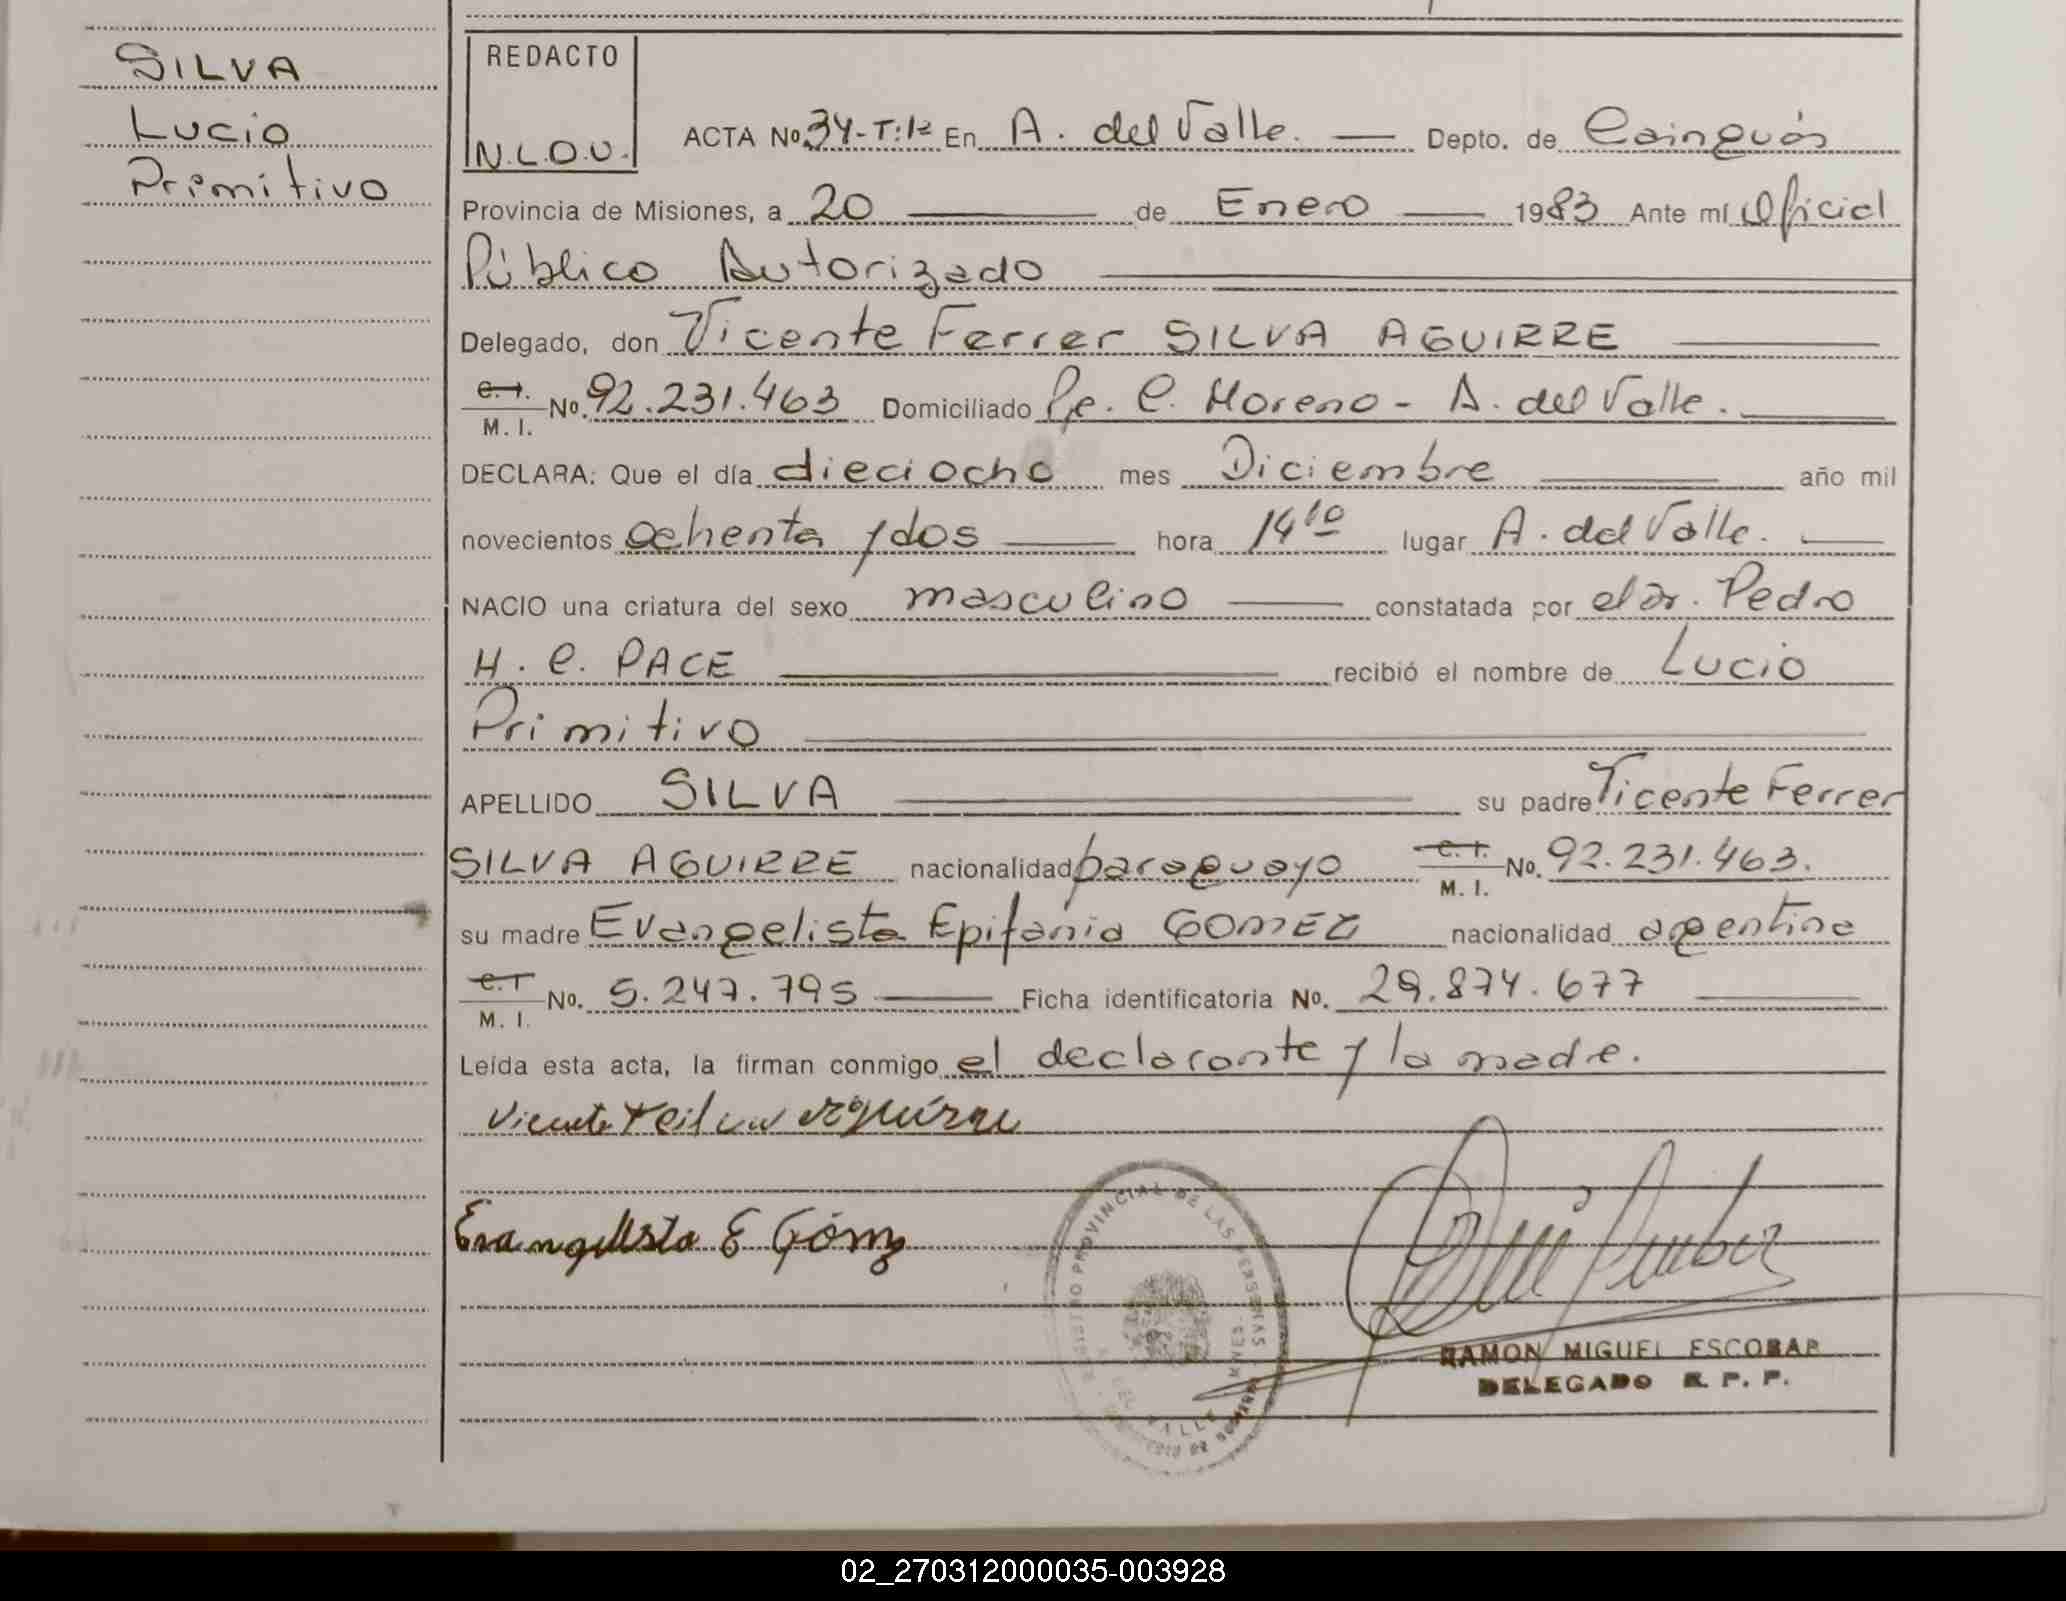 SILVA
Lucio
Primitivo
REDACTO
N.L.O.V.
ACTA No. 34-T:12 En A. del Valle. Depto. de Cainguás
Provincia de Misiones, a 20 de Enero 1983 Ante mí Oficial
Público Autorizado
Delegado, don Vicente Ferrer SILVA AGUIRRE
C.I. M.I. No. 92.231.463 Domiciliado Pje. C. Moreno - A. del Valle.
DECLARA: Que el día dieciocho mes Diciembre año mil
novecientos ochenta y dos hora 14 10 lugar A. del Valle.
NACIO una criatura del sexo masculino constatada por el Dr. Pedro
H. C. PACE recibió el nombre de Lucio
Primitivo
APELLIDO SILVA su padre Vicente Ferrer
SILVA AGUIRRE nacionalidad paraguayo C.I. M.I. No. 92.231.463.
su madre Evangelista Epifania GOMEZ nacionalidad argentina
C.I M.I. No. 5.247.795 Ficha identificatoria No. 29.874.677
Leída esta acta, la firman conmigo el declarante y la madre.
Vicente
Evangelista E Gómz
REGISTRO PROVINCIAL DE LAS PERSONAS
DEL VALLE
MNES.
RAMON MIGUEL ESCOBAR
DELEGADO R. P. P.
02_270312000035-003928